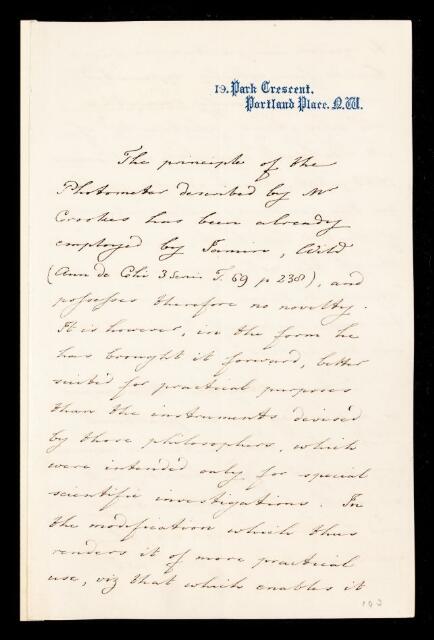 19. Park Crescent.
Portland Place. N.W.
The principle of the
Photometer described by Mr
Crookes has been already
employed by Jamin, Wild
(Ann de Chi 3 Serie T. 69 p 238), and
possesses therefore no novelty.
It is however, in the form he
has brought it forward, better
suited for practical purposes
than the instruments devised
by those philosophers, which
were intended only for special
scientific investigations. In
the modification which thus
renders it of more practical
use, viz that which enables it